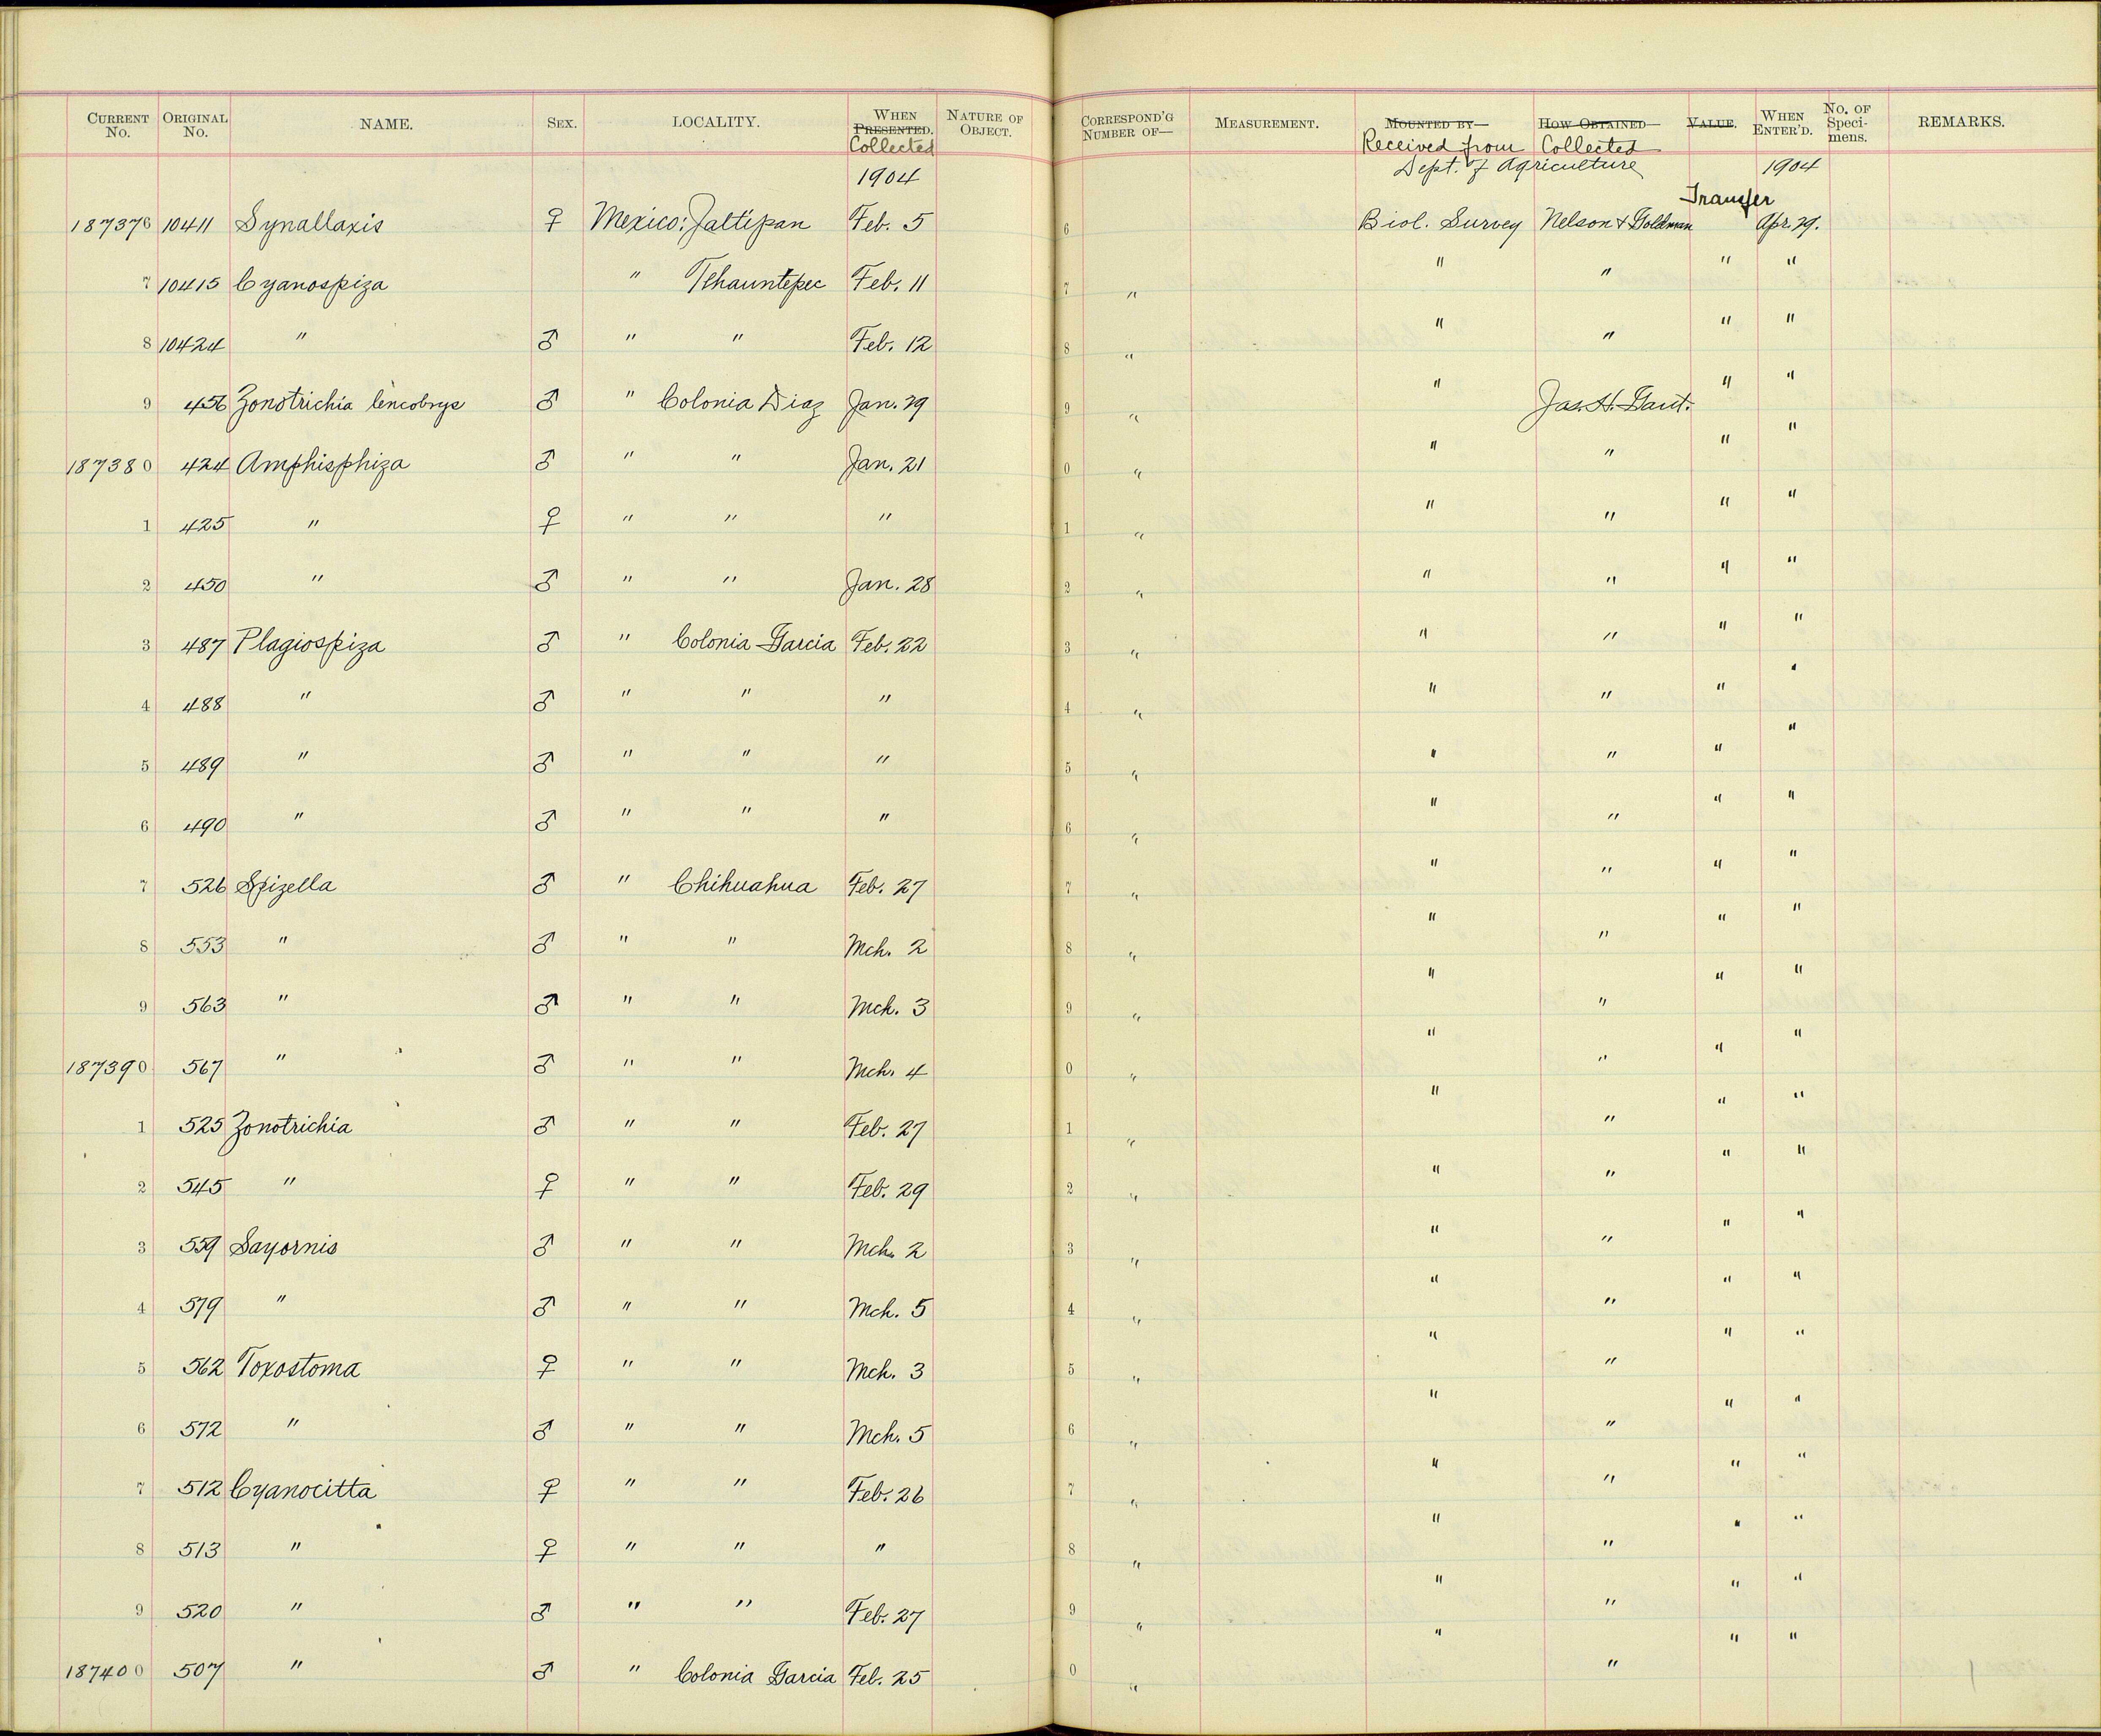 CURRENT No. ORIGINAL No. NAME. SEX. LOCALITY. WHEN PRESENTED. Collected NATURE OF OBJECT. CORRESPOND'G NUMBER OF— MEASUREMENT. MOUNTED BY— Received from HOW OBTAINED— Collected VALUE. WHEN ENTER'D. No. OF Speci- mens. REMARKS.
1904 Dept. of Agriculture 1904
Transfer
187376 10411 Synallaxis ♀ Mexico: Jaltipan Feb. 5 6 Biol. Survey Nelson & Goldman Apr. 29.
7 10415 Cyanospiza " Tehauntepec Feb. 11 7 " " " " "
8 10424 " ♂ " " Feb. 12 8 " " " " "
9 456 Zonotrichia lencobrys ♂ " Colonia Diaz Jan. 29 9 " " Jas. H. Gaut. " "
187380 424 Amphisphiza ♂ " " Jan. 21 0 " " " " "
1 425 " ♀ " " " 1 " " " " "
2 450 " ♂ " " Jan. 28 2 " " " " "
3 487 Plagiospiza ♂ " Colonia Garcia Feb. 22 3 " " " " "
4 488 " ♂ " " " 4 " " " " "
5 489 " ♂ " " " 5 " " " " "
6 490 " ♂ " " " 6 " " " " "
7 526 Spizella ♂ " Chihuahua Feb. 27 7 " " " " "
8 553 " ♂ " " Mch. 2 8 " " " " "
9 563 " ♂ " " Mch. 3 9 " " " " "
187390 567 " ♂ " " Mch. 4 0 " " " " "
1 525 Zonotrichia ♂ " " Feb. 27 1 " " " " "
2 545 " ♀ " " Feb. 29 2 " " " " "
3 559 Sayornis ♂ " " Mch. 2 3 " " " " "
4 579 " ♂ " " Mch. 5 4 " " " " "
5 562 Toxostoma ♀ " " Mch. 3 5 " " " " "
6 572 " ♂ " " Mch. 5 6 " " " " "
7 512 Cyanocitta ♀ " " Feb. 26 7 " " " " "
8 513 " ♀ " " " 8 " " " " "
9 520 " ♂ " " Feb. 27 9 " " " " "
187400 507 " ♂ " Colonia Garcia Feb. 25 0 " " " " "